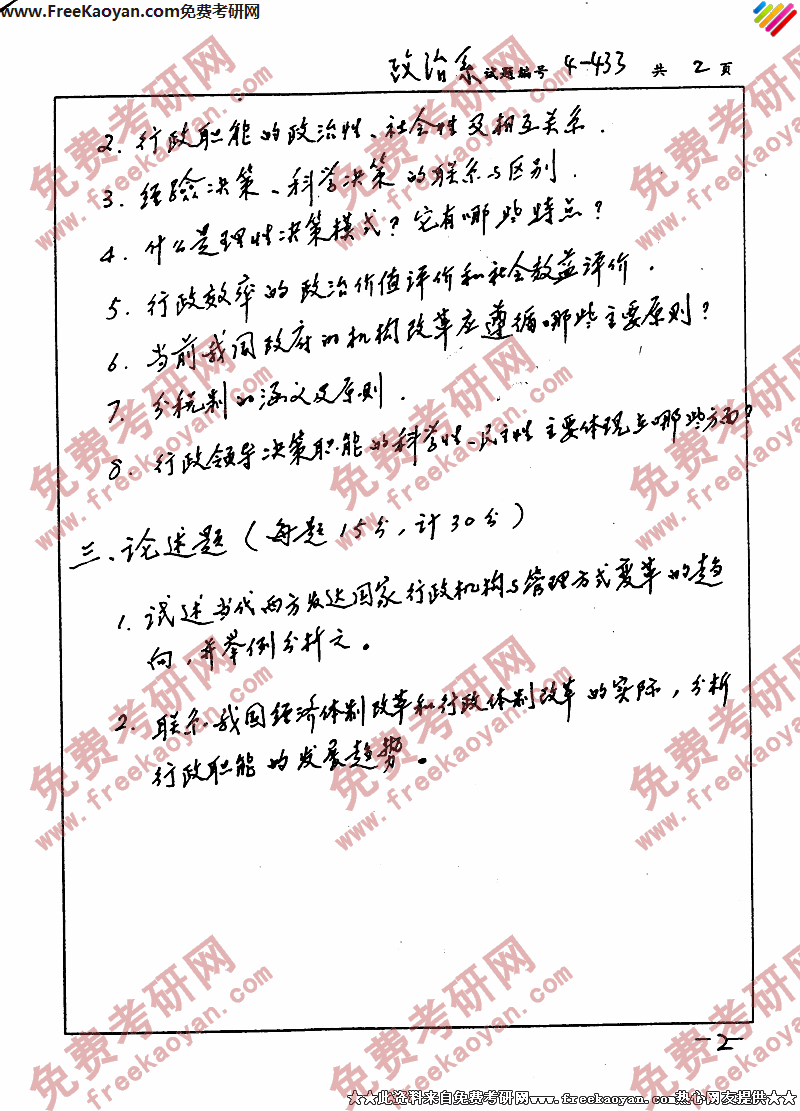 www.FreeKaoyan.com免费考研网
政治系试题编号 4-433 共 2 页
2. 行政职能的政治性、社会性及相互关系.
3. 经验决策、科学决策的联系与区别.
4. 什么是理性决策模式？它有哪些特点？
5. 行政效率的政治价值评价和社会效益评价.
6. 当前我国政府的机构改革应遵循哪些主要原则？
7. 分税制的涵义及原则.
8. 行政领导决策职能的科学性、民主性主要体现在哪些方面？
三、论述题（每题15分，计30分）
1. 试述当代西方发达国家行政机构与管理方式变革的趋
向，并举例分析之。
2. 联系我国经济体制改革和行政体制改革的实际，分析
行政职能的发展趋势。
-2-
★★此资料来自免费考研网www.freekaoyan.com热心网友提供★★
免费考研网
www.freekaoyan.com